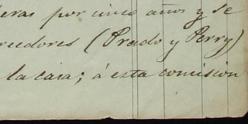 eras por cinco años y se
reedores (Prado y Perry)
la casa; á esta comision